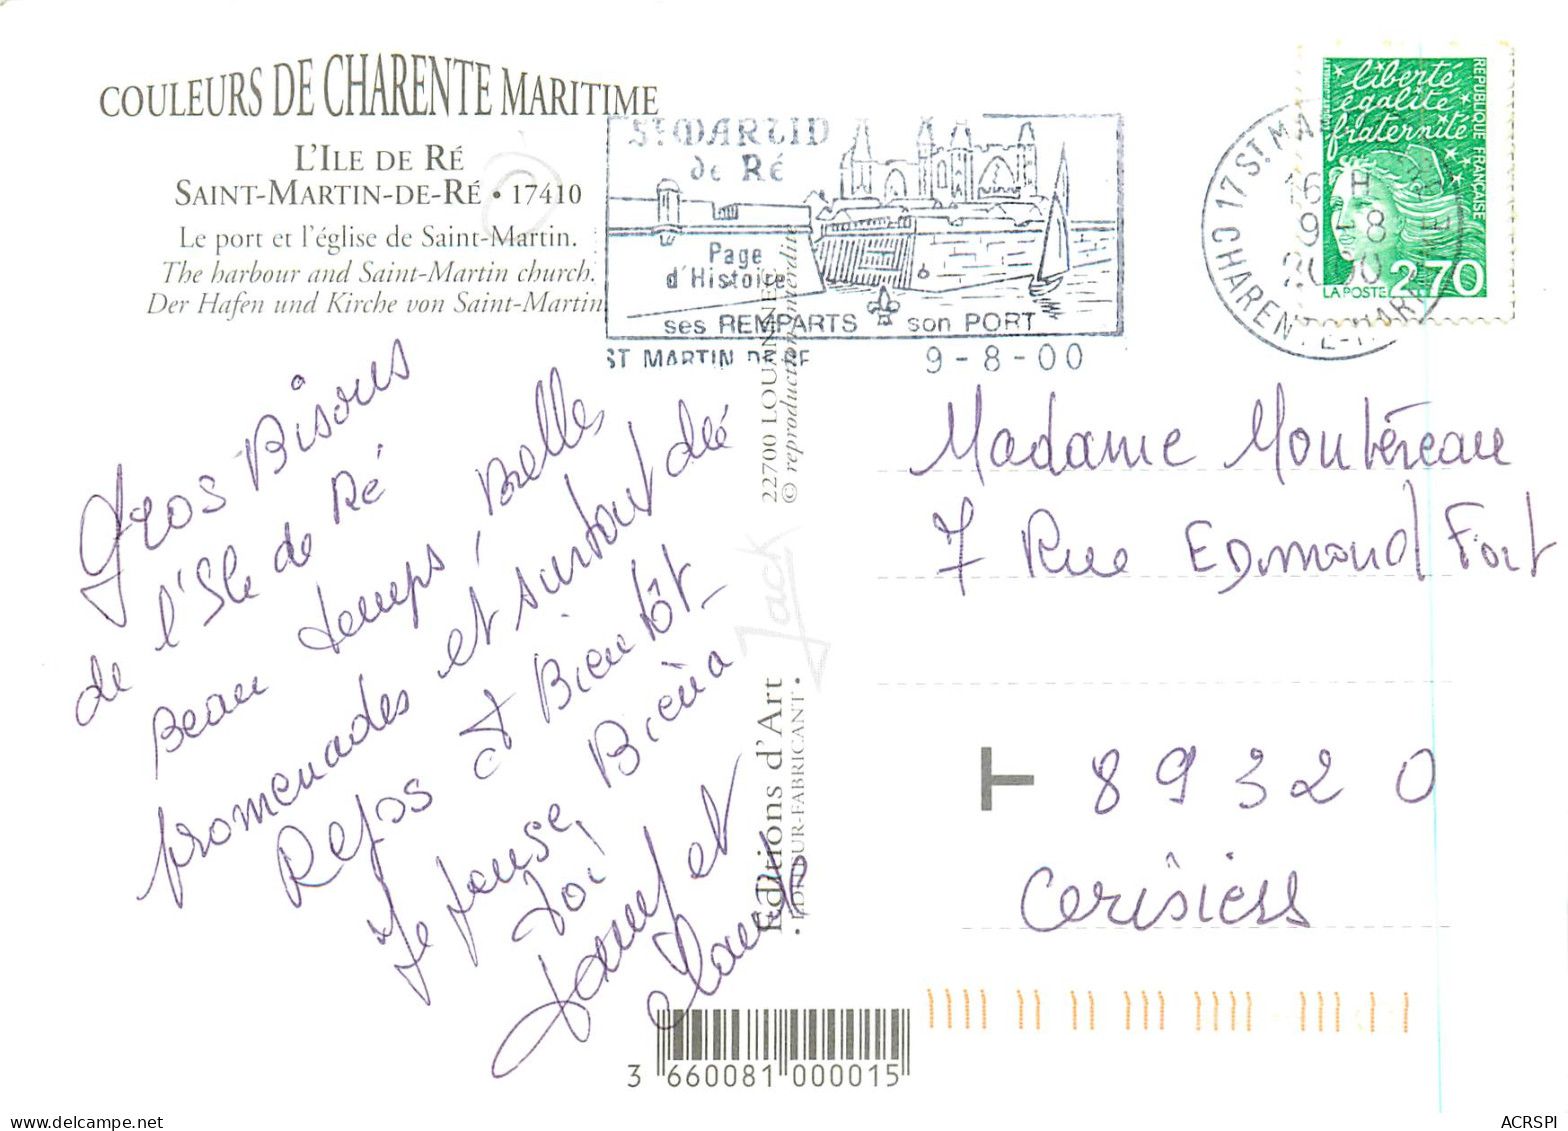 COULEURS DE CHARENTE MARITIME
L'ILE DE RÉ
SAINT-MARTIN-DE-RÉ • 17410
Le port et l'église de Saint-Martin.
The harbour and Saint-Martin church.
Der Hafen und Kirche von Saint-Martin
St MARTIN
de Ré
Page
d'Histoire
ses REMPARTS son PORT
ST MARTIN DE RE 9-8-00
17 St MA
16 H
9 - 8
2000
CHARENTE-MARITIME
liberté
égalité
fraternité
REPUBLIQUE FRANÇAISE
LA POSTE 2,70
Gros Bisous
de l'Ile de Ré
Beau temps, Belles
promenades et surtout du
Repos et Bientôt_
Je pense, Bien à
toi
et
Claude
22700 LOUANNEC
© reproduction interdite
Jack
Editions d'Art
• EDITEUR-FABRICANT •
Madame Montéreau
7 Rue Edmond Fort
T 89320
Cerisiers
3 660081 000015
delcampe.net
ACRSPI